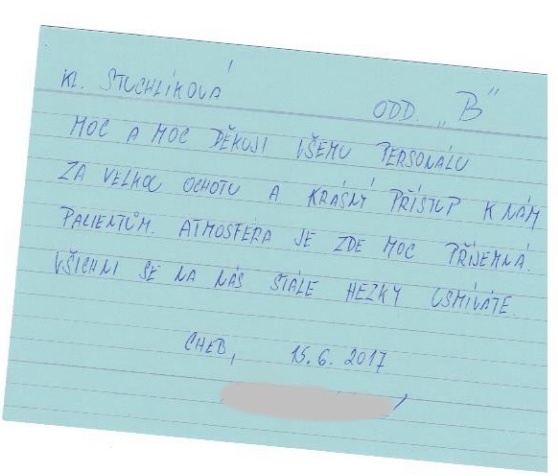 Kl. STUCHLÍKOVÁ
ODD. „B"
MOC A MOC DĚKUJI VŠEMU PERSONÁLU
ZA VELKOU OCHOTU A KRÁSNÝ PŘÍSTUP K NÁM
PACIENTŮM. ATMOSFÉRA JE ZDE MOC PŘÍJEMNÁ.
VŠICHNI SE NA NÁS STÁLE HEZKY USMÍVÁTE.
CHEB, 15.6.2017